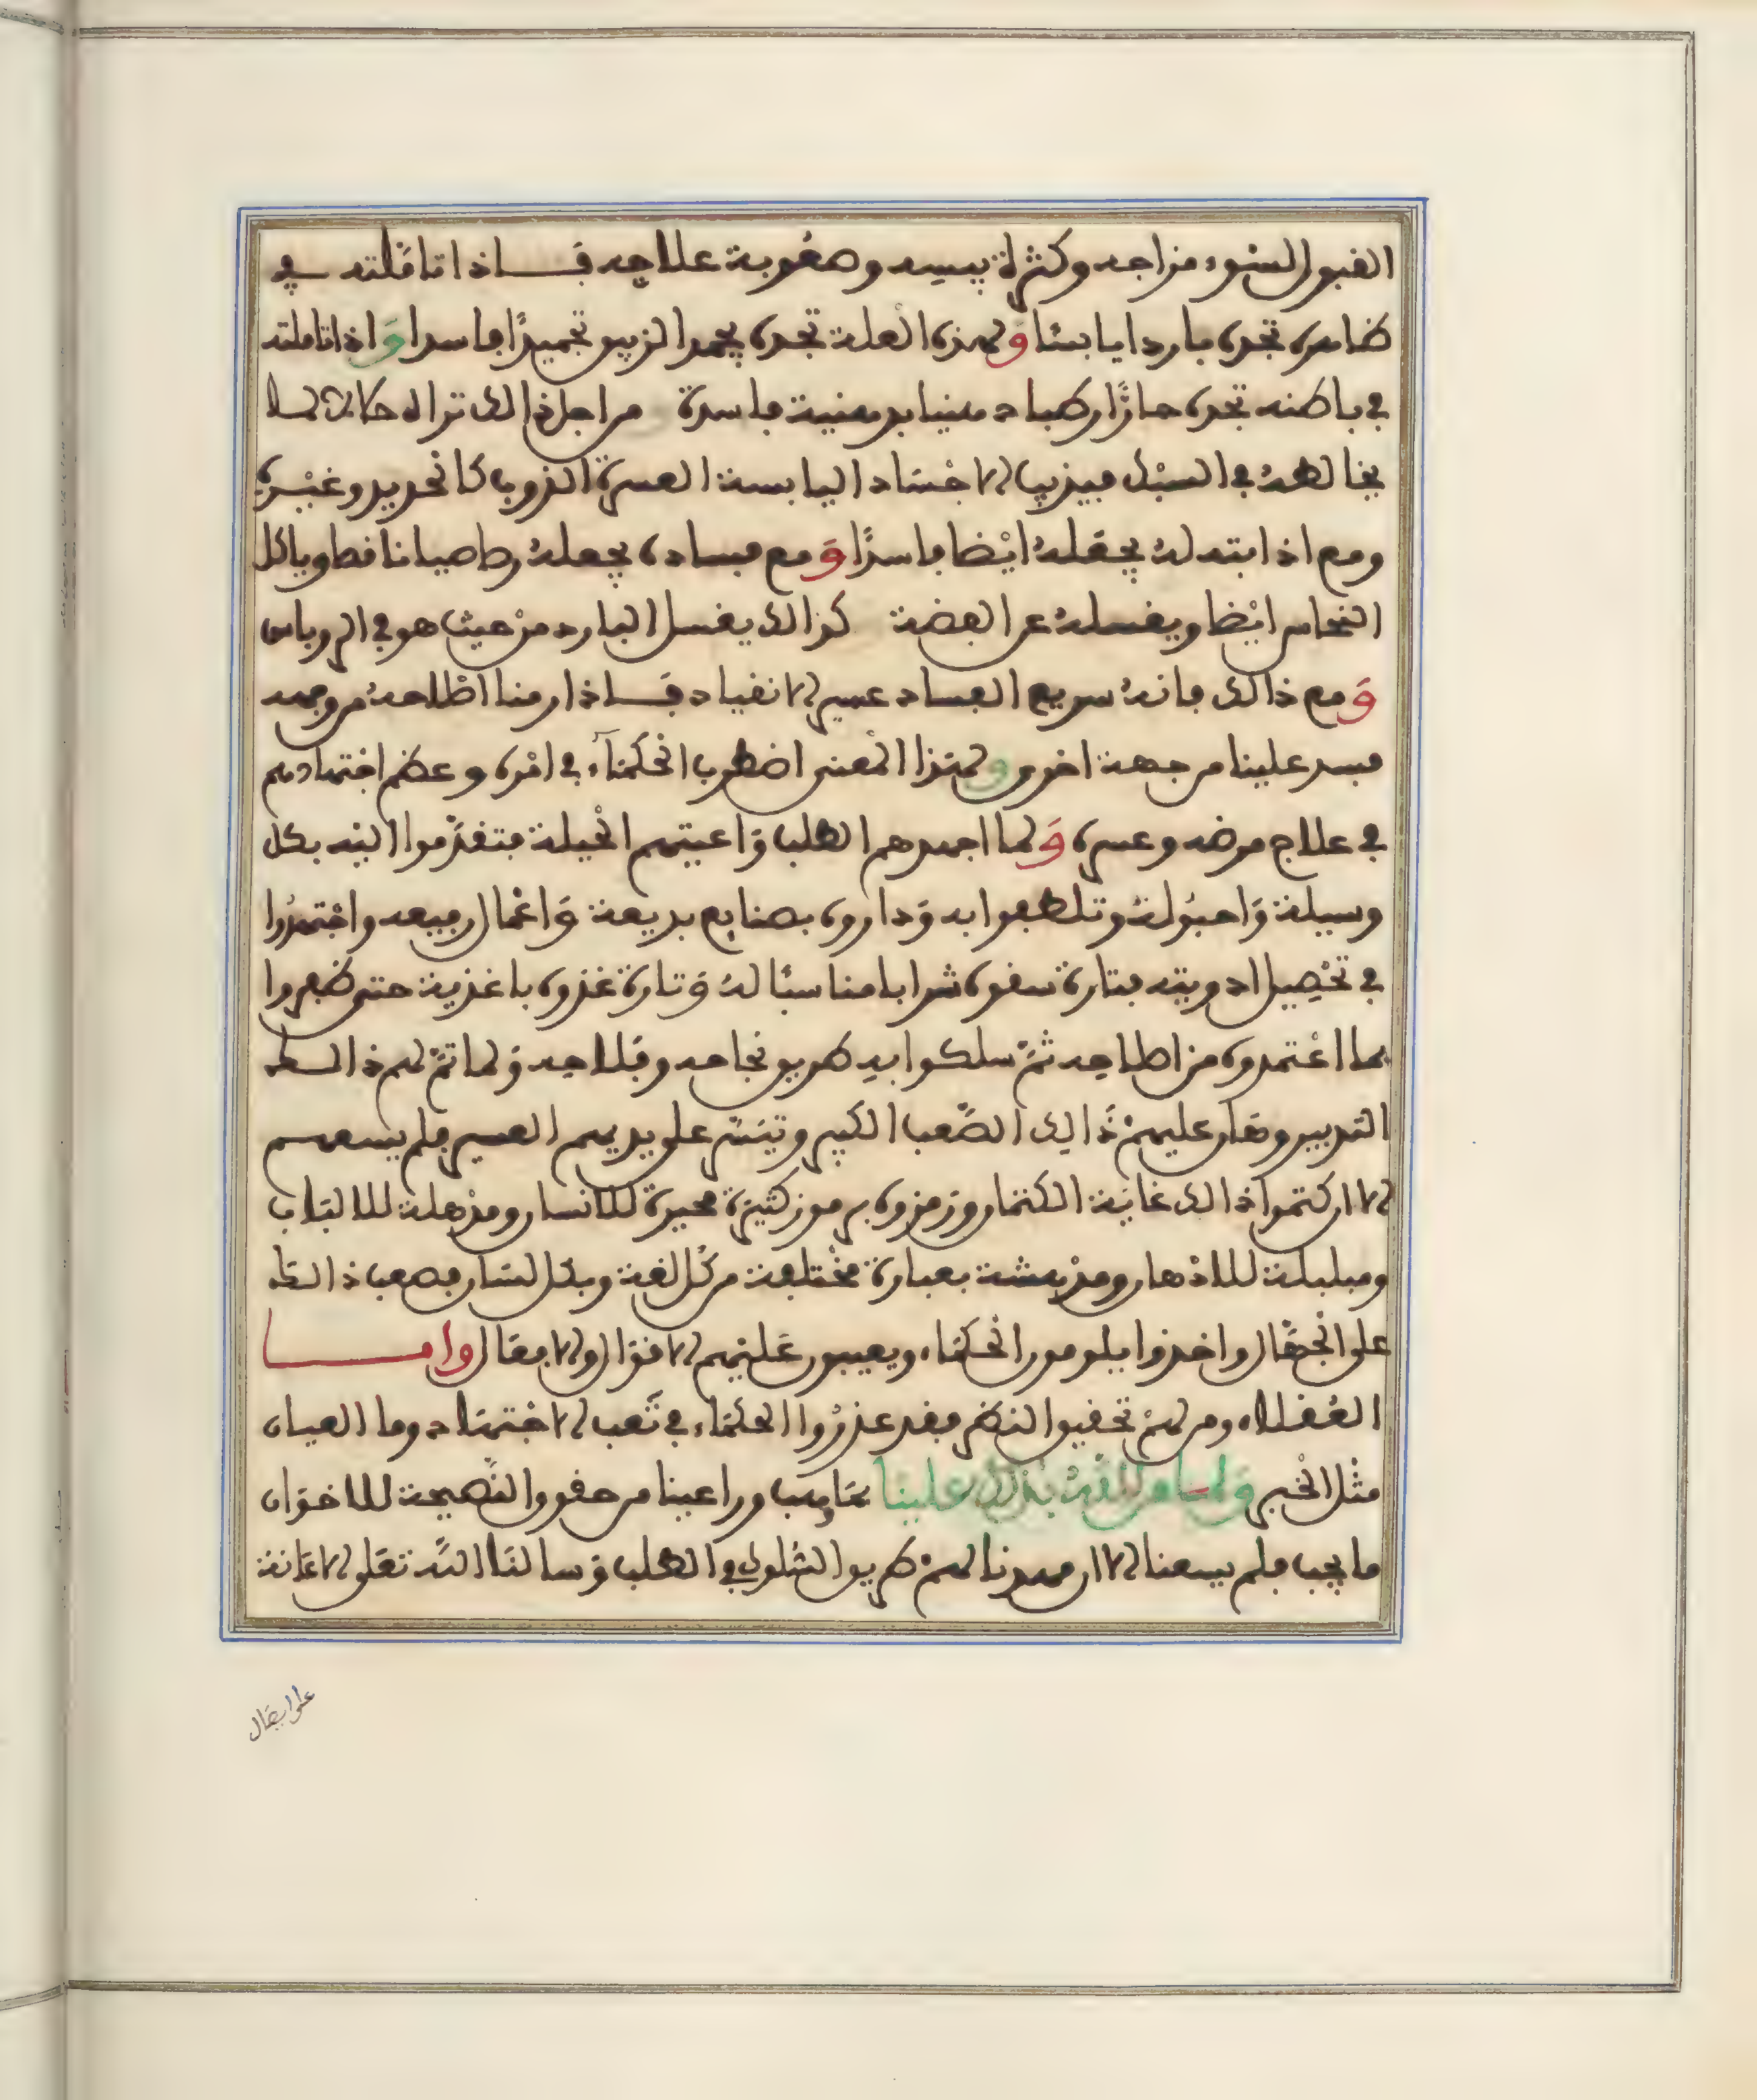 القبول لسوء مزاجه وكثرة يبسه وصعوبة علاجه فاذا تاملته في
ظاهره تجده باردا يابسا ولهذه العلة تجده يجمد الزيبق تجميدا فاسدا واذا تاملته
في باطنه تجده حارا رطبا دهنيا بدهنية فاسدة من اجل ذالك تراه حالة
يخالطه في السبك فيذيب الاجساد اليابسة العسرة الذوب كالحديد وغيره
ومع اذابته له يجعله ايضا فاسدا ومع فساده يجعله رصاصيا ناقصا وياكل
النحاس ايضا ويغسله عن الفضة كذالك يغسل البارد من حيث هو في الروباس
ومع ذالك فانه سريع الفساد عسير الانقياد فاذا رمنا اصلاحه من جهة
فسد علينا من جهة اخرى ولهذا المعنى اضطرب الحكماء في امره وعظم اجتهادهم
في علاج مرضه وعسره ولما اجهدهم الطلب واعيتهم الحيلة فتقدموا اليه بكل
وسيلة واحبولة وتلطفوا به وداروه بصنايع بديعة واعمال رفيعه واجتهدوا
في تحصيل ادويته فتارة سقوه شرابا مناسبا له وتارة غذوه باغذية حتى ظفروا
بما اعتمدوه من اصلاحه ثم سلكوا به طريق نجاحه وفلاحه ولما تم لهم ذالك
التدبير وهان عليهم ذالك الصعب الكبير وتيسر على يديهم العسير فلم يسعهم
الا ان كتموا ذالك غاية الكتمان ورمزوه برموز كثيرة محيرة للانسان ومذهلة للالباب
ومبلبلة للاذهان ومدهشة بعبارة مختلفة من كل لغة وبكل لسان فصعب ذالك
على الجهال واخذوا يلومون الحكماء ويعيبون عليهم الاقوال والافعال واما
العقلاء ومن لهم تحقيق النظر فقد عذروا الحكماء في تعب الاجتهاد وما العيان
مثل الخبر ولما من الله بذلك علينا بمواهب وراعينا من حقوق النصيحة للاخوان
ما يجب فلم يسعنا الا ان مهدنا لهم طريق السلوك في الطلب وسالنا الله تعلى الاعانة
على ايصال